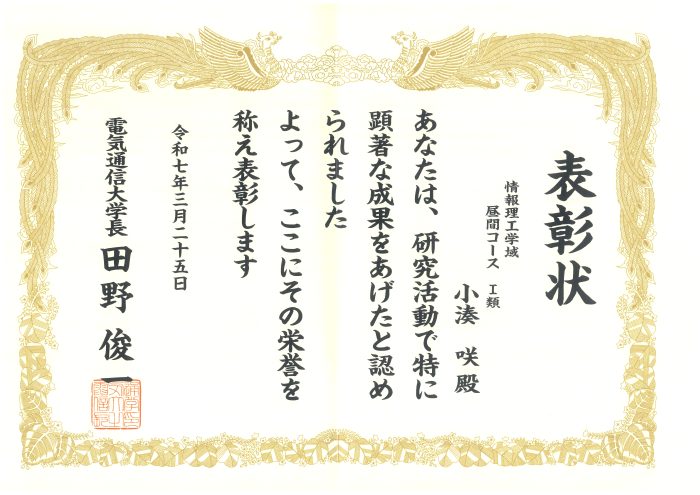 表彰状
情報理工学域
昼間コース I類
小湊 咲 殿
あなたは、研究活動で特に
顕著な成果をあげたと認め
られました
よって、ここにその栄誉を
称え表彰します
令和七年三月二十五日
電気通信大学長 田野 俊一